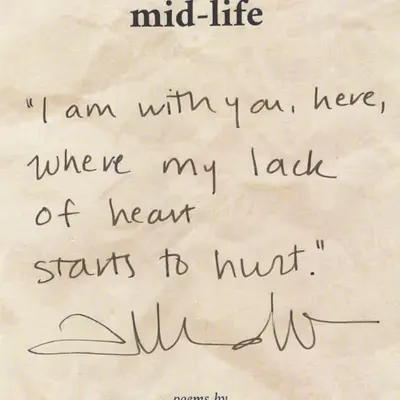 mid-life
"I am with you, here,
where my lack
of heart
starts to hurt."
poems by